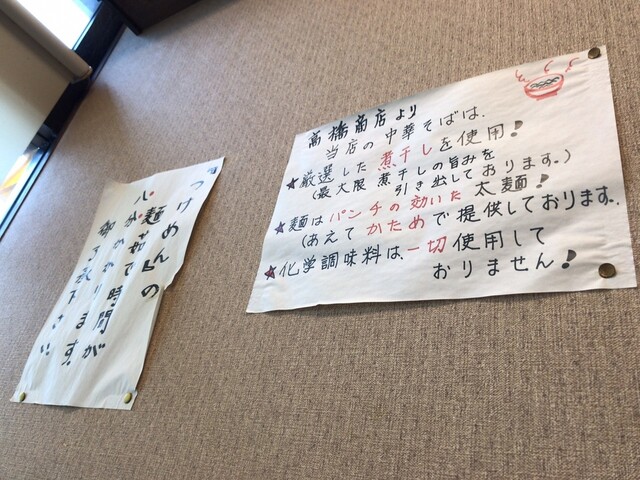 高橋商店より
当店の中華そばは、
★厳選した煮干しを使用!
(最大限煮干しの旨みを
引き出しております。)
★麺はパンチの効いた太麺!
(あえてかためで提供しております。
★化学調味料は、一切使用して
おりません!
『つけめん』の
麺茹で時間が
八分かかります。
御了承下さい